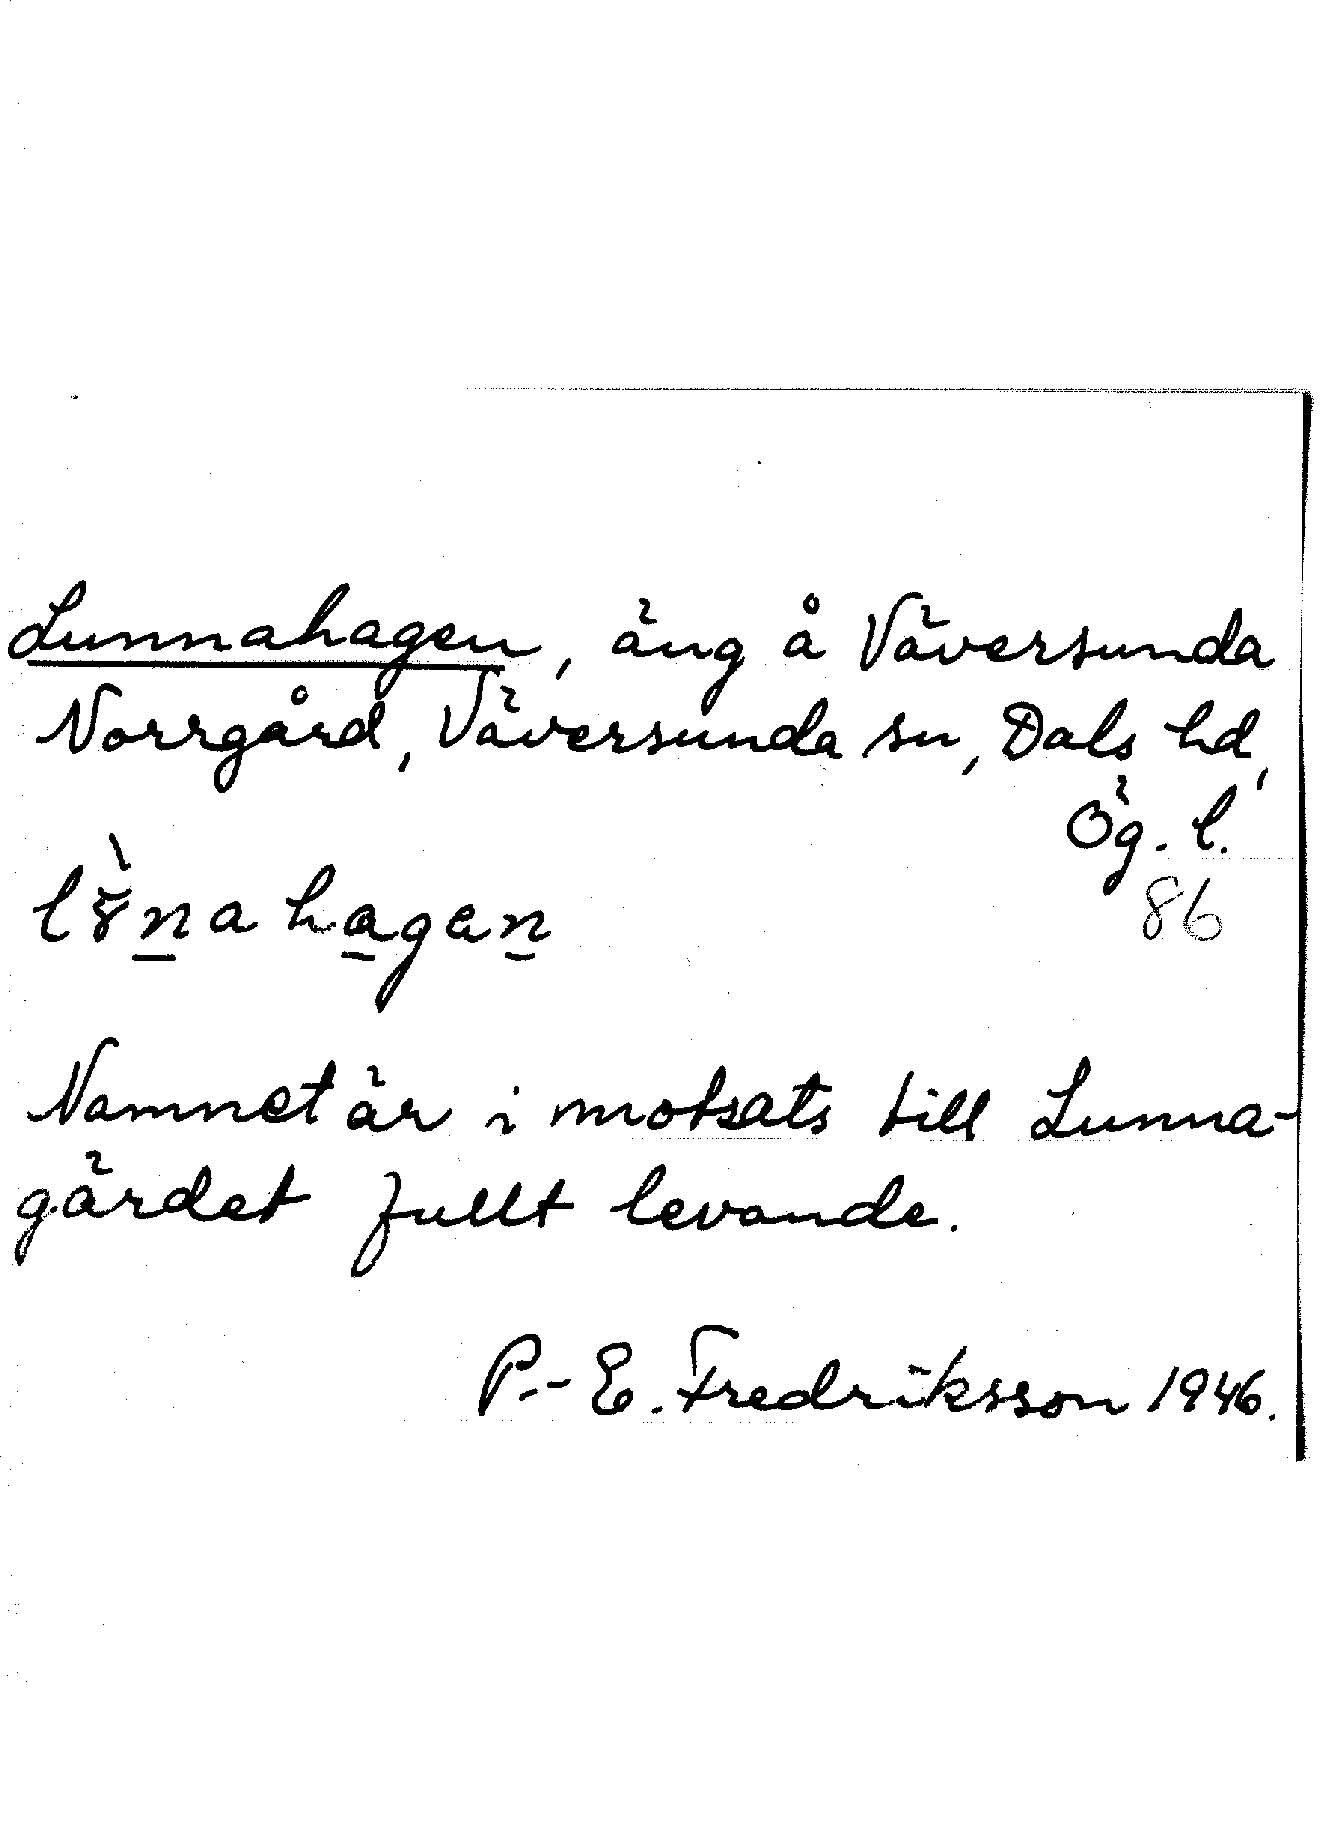 Lunnahagen, äng å Väversunda
Norrgård, Väversunda sn, Dals hd,
Ög. l.
86
Namnet är i motsats till Lunna-
gärdet fullt levande.
P.-E. Fredriksson 1946.